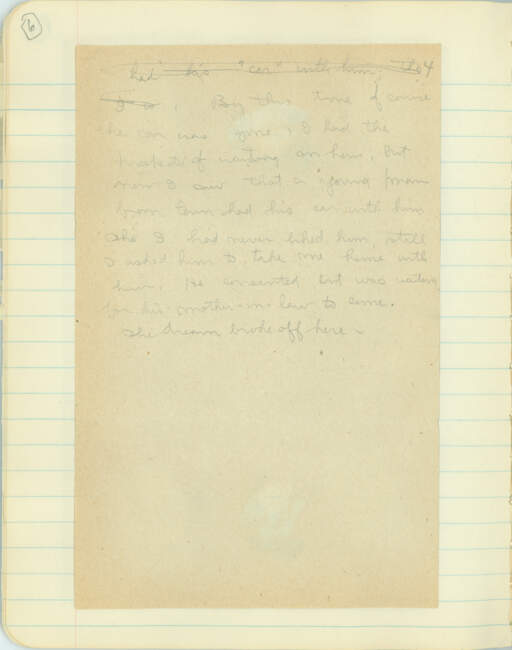 6
had his "car" with him, tho 4
I w. By this time of course
the car was gone & I had the
prospects of waiting an hour. But
now I saw that a young man
from town had his car with him
tho I had never liked him, still
I asked him to take me home with
him. He consented but was waiting
for his mother-in-law to come.
The dream broke off here -